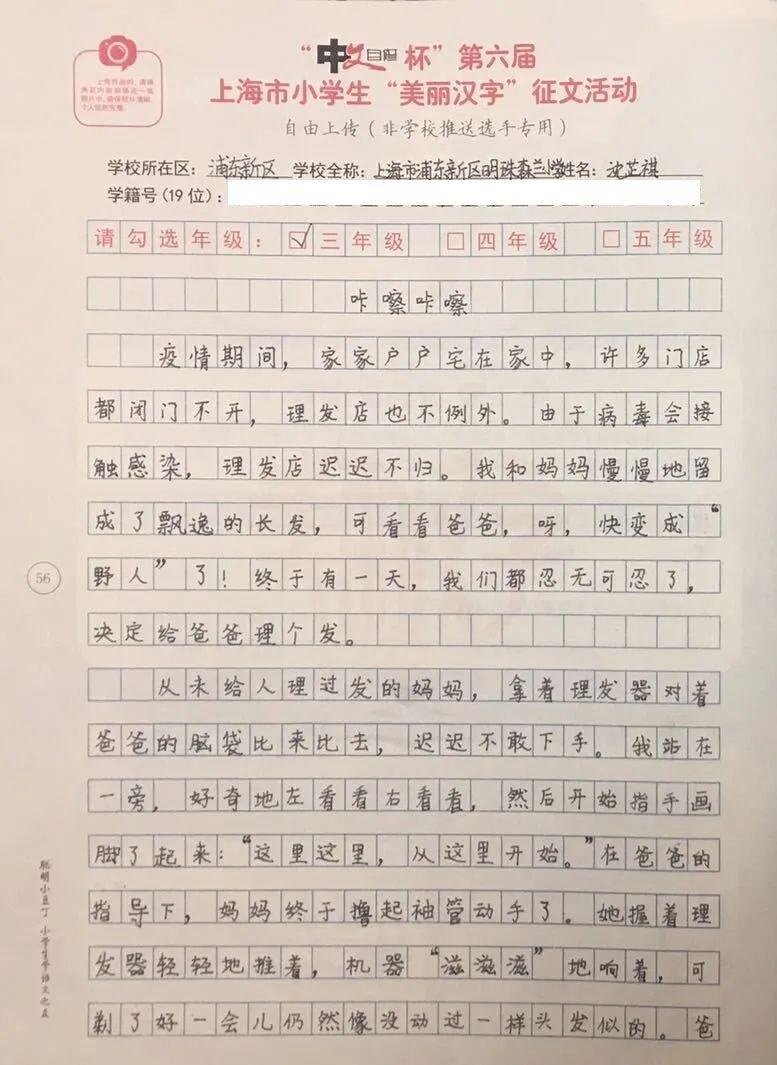 上传作品时，请将
两页内容拍摄在一张
照片中，确保照片清晰，
个人信息完整。
“中文自修杯”第六届
上海市小学生“美丽汉字”征文活动
自由上传（非学校推送选手专用）
学校所在区：浦东新区 学校全称：上海市浦东新区明珠森兰小学 姓名：沈芷祺
学籍号（19位）：
请勾选年级：☑三年级 □四年级 □五年级
咔嚓咔嚓
疫情期间，家家户户宅在家中，许多门店
都闭门不开，理发店也不例外。由于病毒会接
触感染，理发店迟迟不归。我和妈妈慢慢地留
成了飘逸的长发，可看看爸爸，呀，快变成“
野人”了！终于有一天，我们都忍无可忍了，
决定给爸爸理个发。
从未给人理过发的妈妈，拿着理发器对着
爸爸的脑袋比来比去，迟迟不敢下手。我站在
一旁，好奇地左看看右看看，然后开始指手画
脚了起来：“这里这里，从这里开始。”在爸爸的
指导下，妈妈终于撸起袖管动手了。她握着理
发器轻轻地推着，机器“滋滋滋”地响着，可
剃了好一会儿仍然像没动过一样头发似的。爸
56
聪明小豆丁 小学生学语文之友